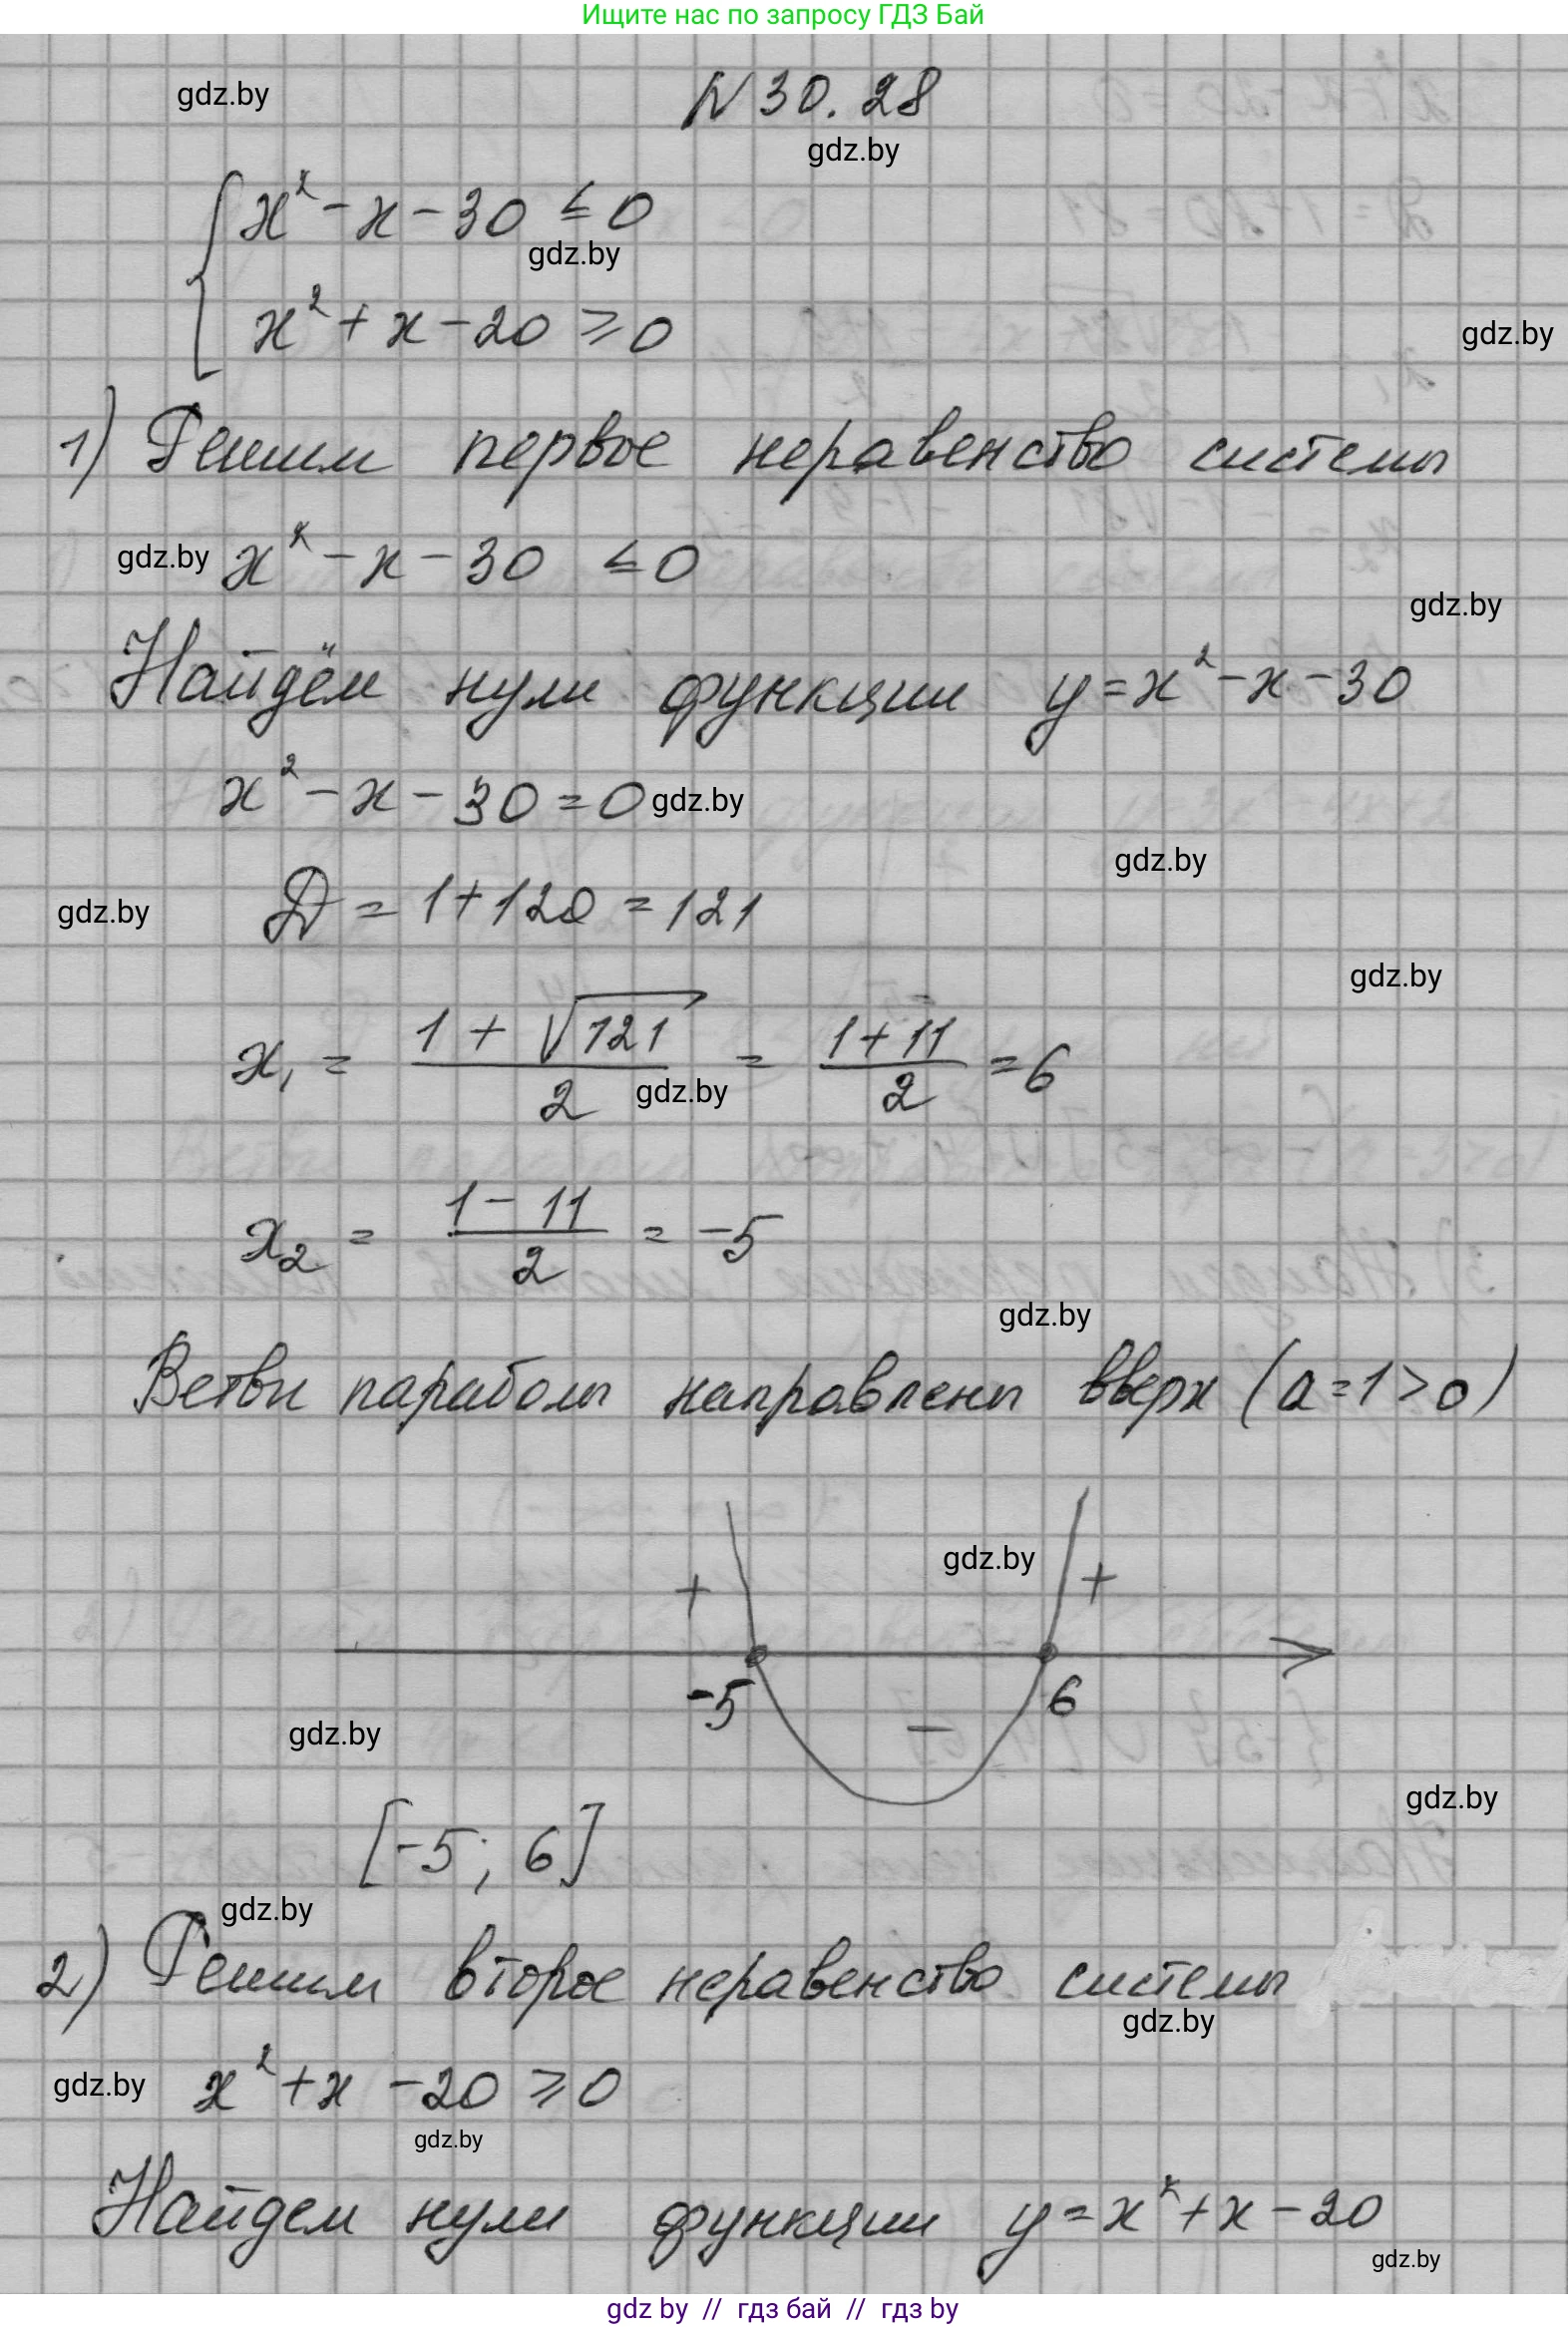 Ищите нас по запросу ГДЗ Бай
gdz.by
N 30.28
gdz.by
x² - x - 30 ≤ 0
gdz.by
x² + x - 20 ≥ 0
gdz.by
1) Решим первое неравенство системы
gdz.by x² - x - 30 ≤ 0
gdz.by
Найдём нули функции y = x² - x - 30
x² - x - 30 = 0 gdz.by
gdz.by
gdz.by D = 1 + 120 = 121
gdz.by
x₁ = (1 + √121)/2 = (1 + 11)/2 = 6
gdz.by
x₂ = (1 - 11)/2 = -5
gdz.by
Ветви параболы направлены вверх (a = 1 > 0)
gdz.by
+ +
-5 6
gdz.by −
gdz.by
[-5; 6]
gdz.by
2) Решим второе неравенство системы
gdz.by
gdz.by x² + x - 20 ≥ 0
gdz.by
Найдем нули функции y = x² + x - 20
gdz.by
gdz by // гдз бай // гдз by